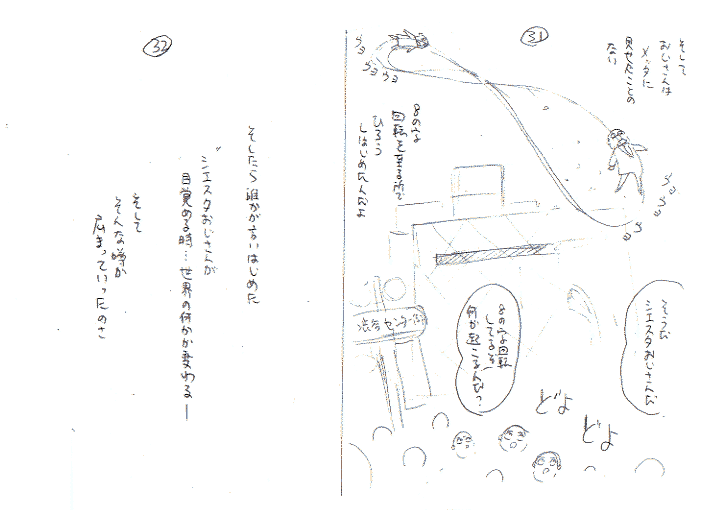 31
そして
おじさんは
メッタに
見せたことの
ない
8の字
回転を至る所で
ひろう
しはじめたんだよ
ウョ
ウョ
ウョ
ウョ
ウョ
ウョ
そうだ
シエスタおじさんだ
8の字回転
してるぞ!
何が起こるんだ?
渋谷センター街
どよ
どよ
32
そしたら誰かが言いはじめた
シエスタおじさんが
目覚める時…世界の何かが変わるー
そして
そんな噂が
広まっていったのさ